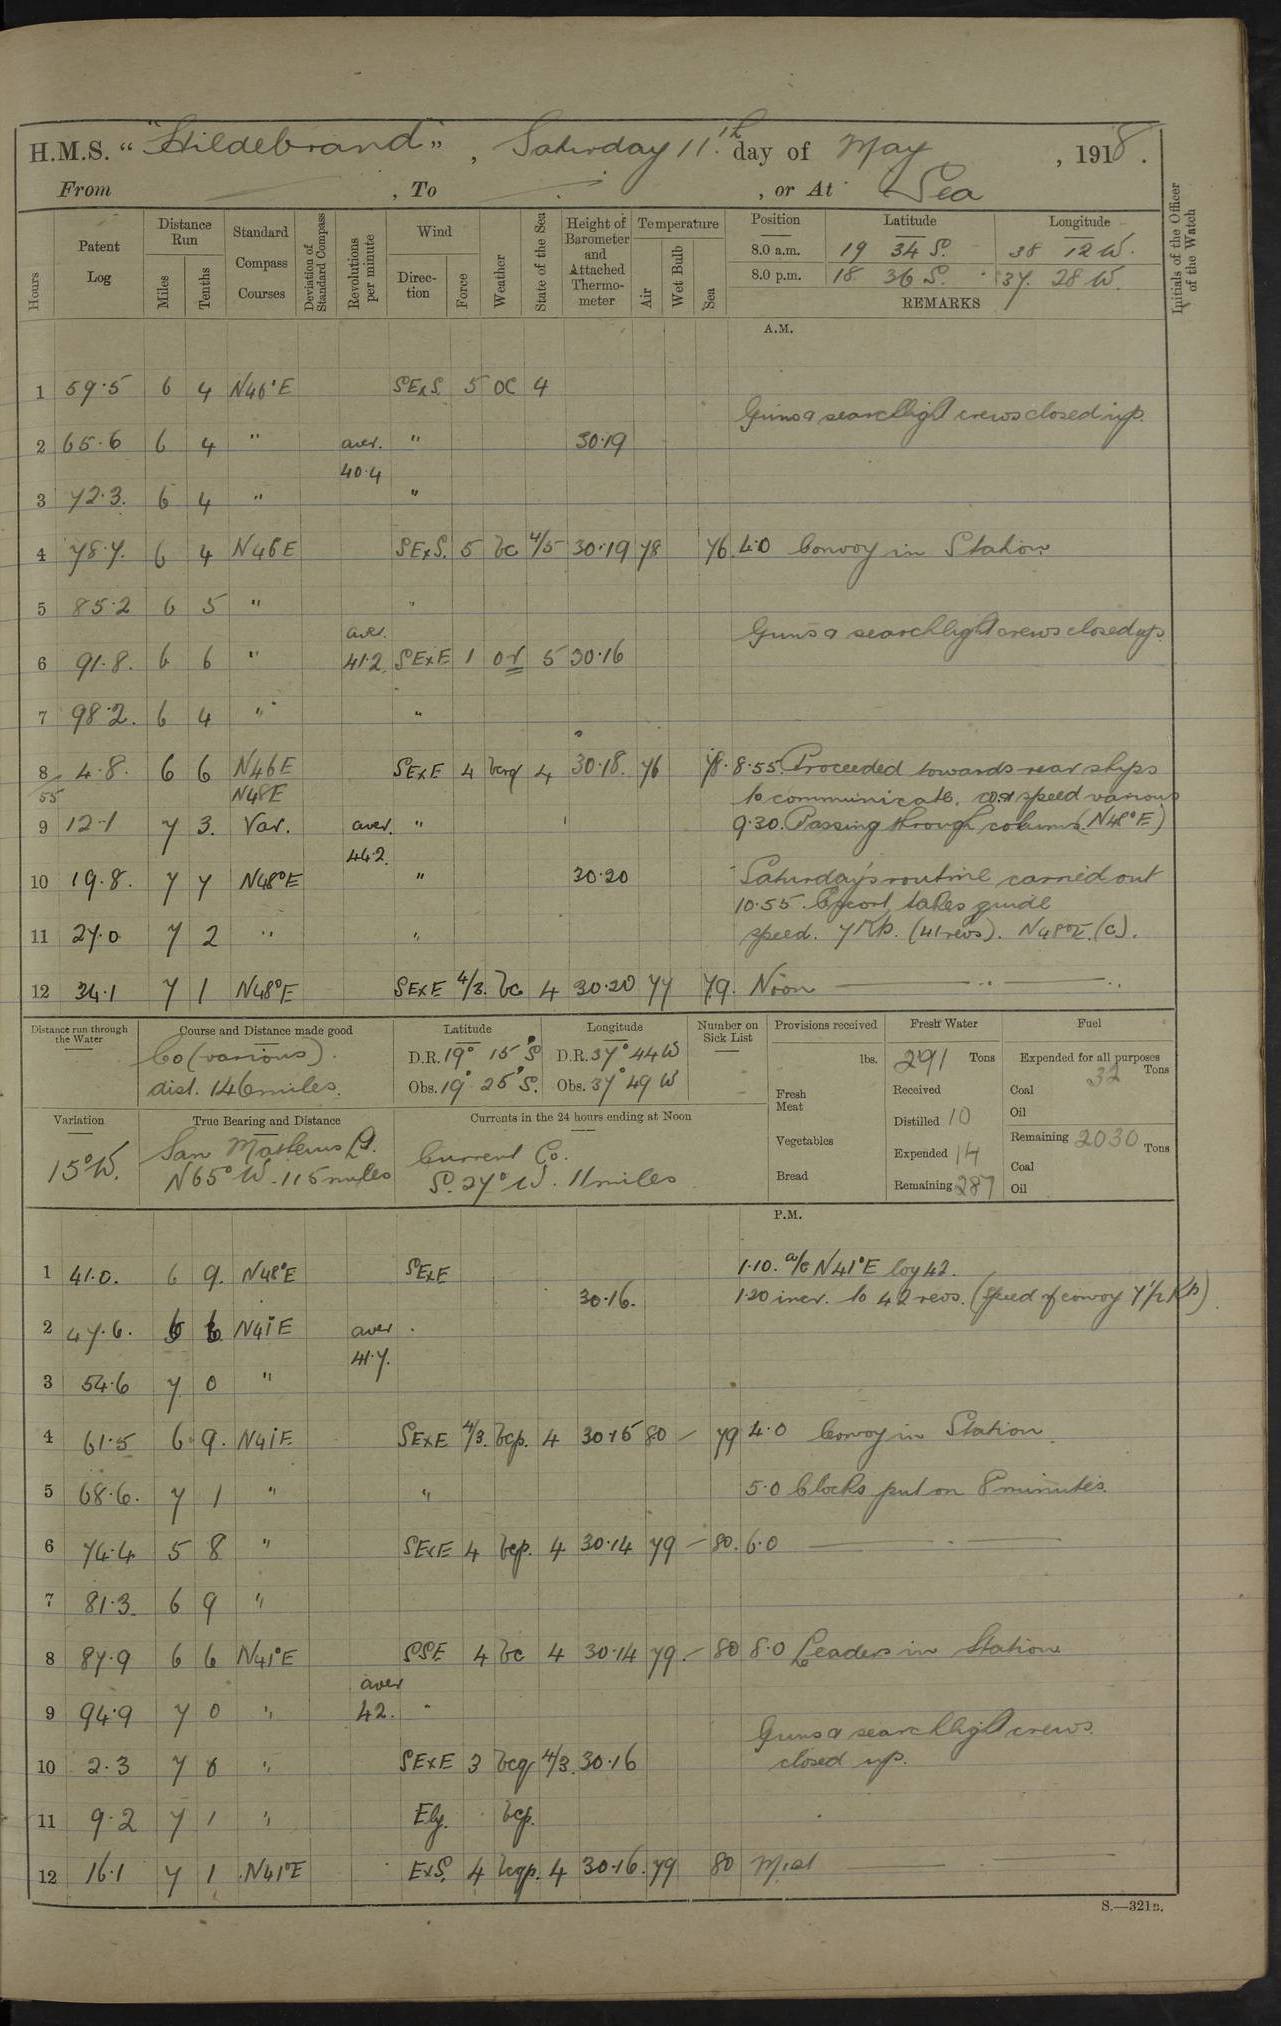 H.M.S. "Hildebrand", Saturday 11th day of May, 1918.
From , To , or At Sea
Hours
Patent Log
Distance Run
Miles
Tenths
Standard Compass Courses
Deviation of Standard Compass
Revolutions per minute
Wind
Direction
Force
Weather
State of the Sea
Height of Barometer and Attached Thermometer
Temperature
Air
Wet Bulb
Sea
Position Latitude Longitude
8.0 a.m. 19 34 S. 38 12 W.
8.0 p.m. 18 36 S. 37. 28 W.
REMARKS
Initials of the Officer of the Watch
A.M.
1 59.5 6 4 N46°E SExS. 5 oc 4
Guns & searchlight crews closed up.
2 65.6 6 4 " aver. " 30.19
40.4
3 72.3. 6 4 " "
4 78.7. 6 4 N46E SExS. 5 bc 4/5 30.19 78 76 4.0 Convoy in Station
5 85.2 6 5 " "
aver. Guns & searchlight crews closed up.
6 91.8. 6 6 " 41.2 SExE 1 or 5 30.16
7 98.2. 6 4 " "
8 4.8. 6 6 N46E SExE 4 bcrq 4 30.18. 76 78. 8.55. Proceeded towards rear ships
55 N48E to communicate. co. & speed various
9 12.1 7 3. Var. aver. " 9.30. Passing through columns (N48°E)
44.2.
10 19.8. 7 7 N48°E " 30.20 Saturday's routine carried out
10.55. Escort takes guide
11 27.0 7 2 " " speed. 7 Kts. (41 revs). N48°E. (c).
12 34.1 7 1 N48°E SExE 4/3. bc 4 30.20 77 79. Noon
Distance run through the Water
Course and Distance made good
Co (various).
dist. 146 miles.
Latitude
D.R. 19° 15' S
Obs. 19° 25' S.
Longitude
D.R. 37° 44 W
Obs. 37° 49 W
Number on Sick List
Provisions received
lbs.
Fresh Meat
Vegetables
Bread
Fresh Water
291 Tons
Received
Distilled 10
Expended 14
Remaining 287
Fuel
Expended for all purposes
32 Tons
Coal
Oil
Remaining 2030 Tons
Coal
Oil
Variation
15°W.
True Bearing and Distance
San Mathews Lt.
N65°W. 115 miles
Currents in the 24 hours ending at Noon
Current Co.
S. 27° W. 11 miles
P.M.
1 41.0. 6 9. N48°E SExE 1.10. a/c N41°E log 42.
30.16. 1.20 incr. to 42 revs. (speed of convoy 7½ Kts)
2 47.6. 6 6 N41E aver
41.7.
3 54.6 7 0 "
4 61.5 6 9. N41E SExE 4/3. bcp. 4 30.15 80 – 79 4.0 Convoy in Station
5 68.6. 7 1 " " 5.0 Clocks put on 8 minutes.
6 74.4 5 8 " SExE 4 bcp. 4 30.14 79 – 80. 6.0
7 81.3. 6 9 "
8 87.9 6 6 N41°E SSE 4 bc 4 30.14 79. – 80 8.0 Leaders in Station
aver
9 94.9 7 0 " 42. "
Guns & searchlight crews
10 2.3 7 " SExE 3 bcq 4/3. 30.16 closed up.
11 9.2 7 1 " Ely. bcp.
12 16.1 7 1 N41°E ExS. 4 bcqp. 4 30.16. 79 80 Midt
S.—321B.